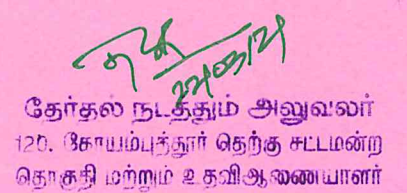 தேர்தல் நடத்தும் அலுவலர்
120. கோயம்புத்தூர் தெற்கு சட்டமன்ற
தொகுதி மற்றும் உதவிஆணையாளர்